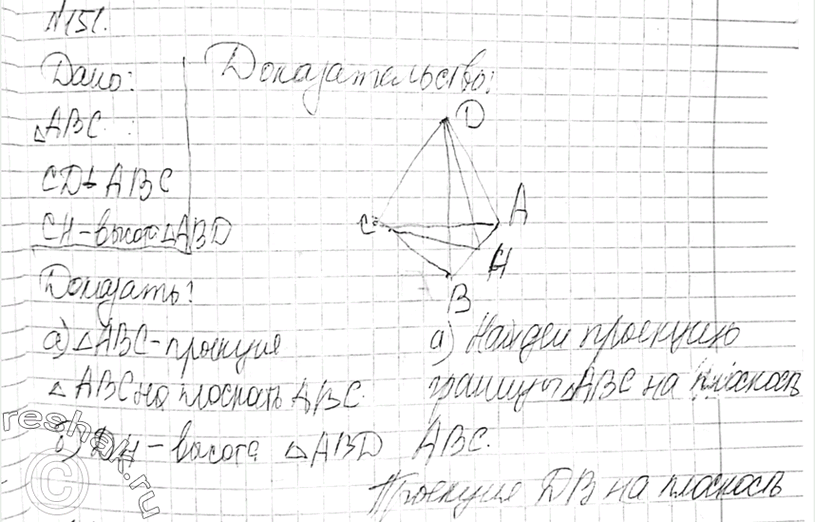 №151.
Дано:
Доказательство:
△ABC
CD⊥ABC
CH-высота △ABD
D
C
A
H
B
Доказать:
а) △ABC-проекция
△ABC на плоскать ABC.
б) DH - высота △ABD
а) Найдем проекцию
границы △ABC на плоскость
ABC.
Проекция DB на плоскость
reshak.ru
©